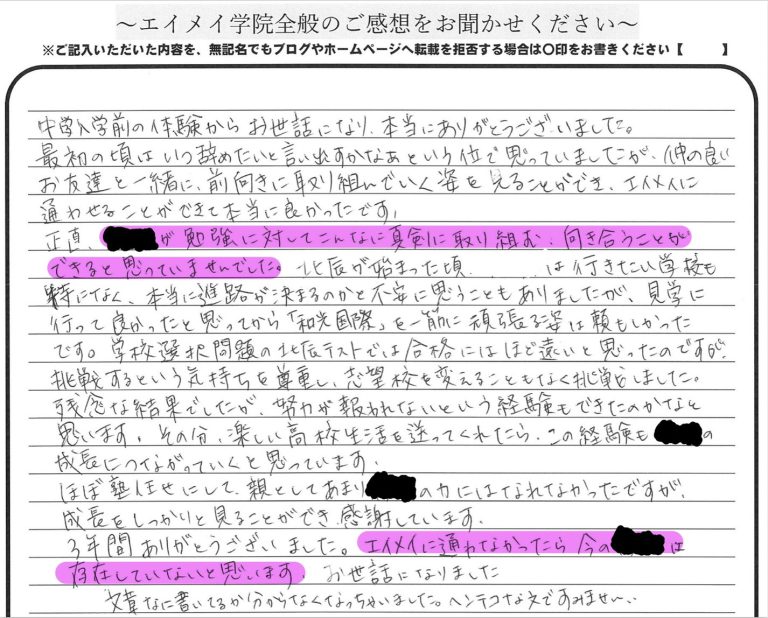 ～エイメイ学院全般のご感想をお聞かせください～
※ご記入いただいた内容を、無記名でもブログやホームページへ転載を拒否する場合は〇印をお書きください【　　】
中学入学前の体験からお世話になり、本当にありがとうございました。
最初の頃はいつ辞めたいと言い出すかなぁという位で思っていましたが、仲の良い
お友達と一緒に、前向きに取り組んでいく姿を見ることができ、エイメイに
通わせることができて本当に良かったです。
正直、が勉強に対してこんなに真剣に取り組む、向き合うことが
できると思っていませんでした。北辰が始まった頃、は行きたい学校も
特になく、本当に進路が決まるのかと不安に思うこともありましたが、見学に
行って良かったと思ってから「和光国際」を一筋に頑張る姿は頼もしかった
です。学校選択問題の北辰テストでは合格にはほど遠いと思ったのですが、
挑戦するという気持ちを尊重し、志望校を変えることもなく挑戦しました。
残念な結果でしたが、努力が報われないという経験もできたのかなと
思います。その分、楽しい高校生活を送ってくれたら、この経験も の
成長につながっていくと思っています。
ほぼ塾任せにして、親としてあまり の力にはなれなかったですが、
成長をしっかりと見ることができ、感謝しています。
3年間ありがとうございました。エイメイに通わなかったら今の は
存在していないと思います。お世話になりました
文章なに書いてるか分からなくなっちゃいました。ヘンテコな文ですみません…